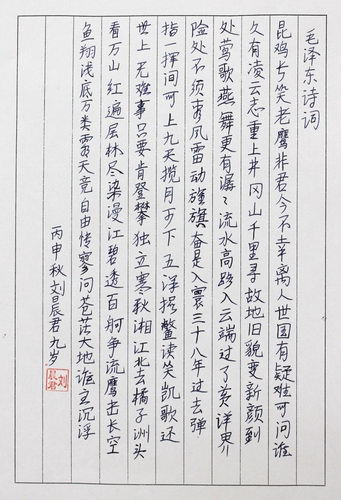 毛泽东诗词
昆鸡长笑老鹰非君今不幸离人世国有疑难可问谁
久有凌云志重上井冈山千里寻故地旧貌变新颜到
处莺歌燕舞更有潺々流水高路入云端过了黄洋界
险处不须看风雷动旌旗奋是人寰三十八年过去弹
指一挥间可上九天揽月可下五洋捉鳖谈笑凯歌还
世上无难事只要肯登攀独立寒秋湘江北去橘子洲头
看万山红遍层林尽染漫江碧透百舸争流鹰击长空
鱼翔浅底万类霜天竞自由怅寥问苍茫大地谁主沉浮
丙申秋刘晨君九岁
刘晨君